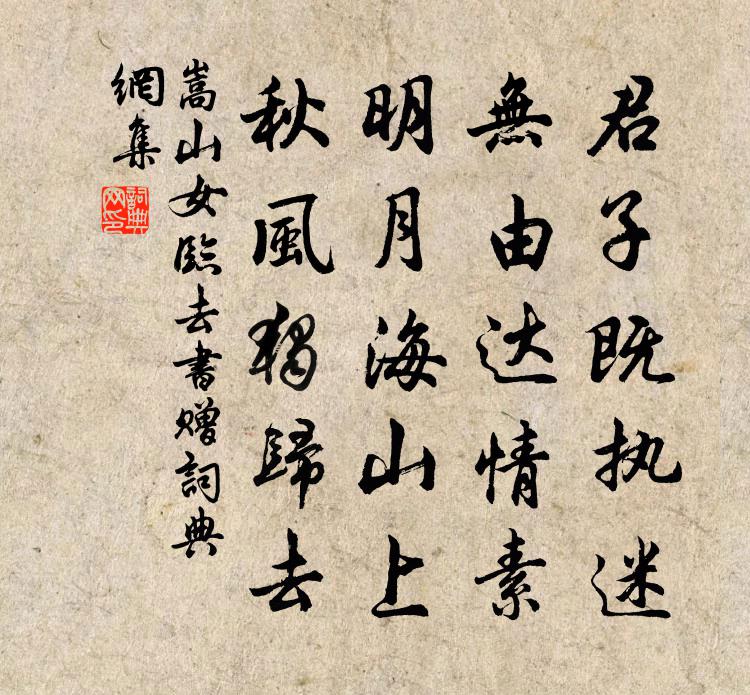 君子既执迷
無由达情素
明月海山上
秋風獨歸去
嵩山女臨去書贈詞典
網集
詞典
网印